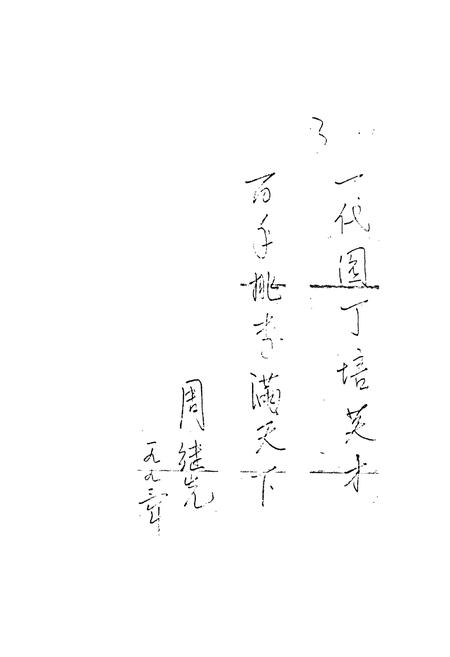 一代园丁培英才
百年桃李满天下
周继尧
一九九三年